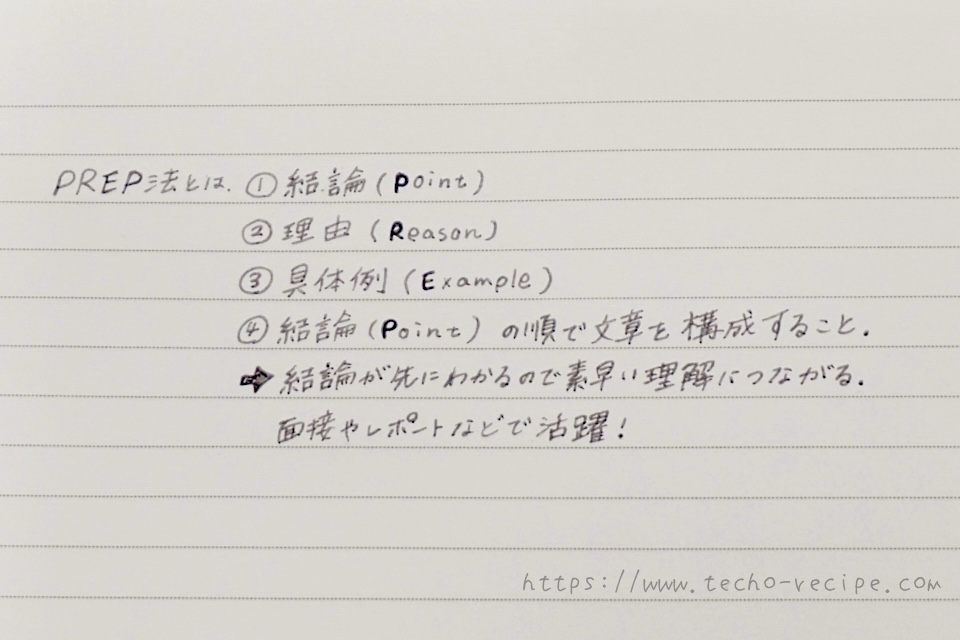 PREP法とは、①結論(Point)
②理由(Reason)
③具体例(Example)
④結論(Point)の順で文章を構成すること.
➡結論が先にわかるので素早い理解につながる.
面接やレポートなどで活躍!
https://www.techo-recipe.com